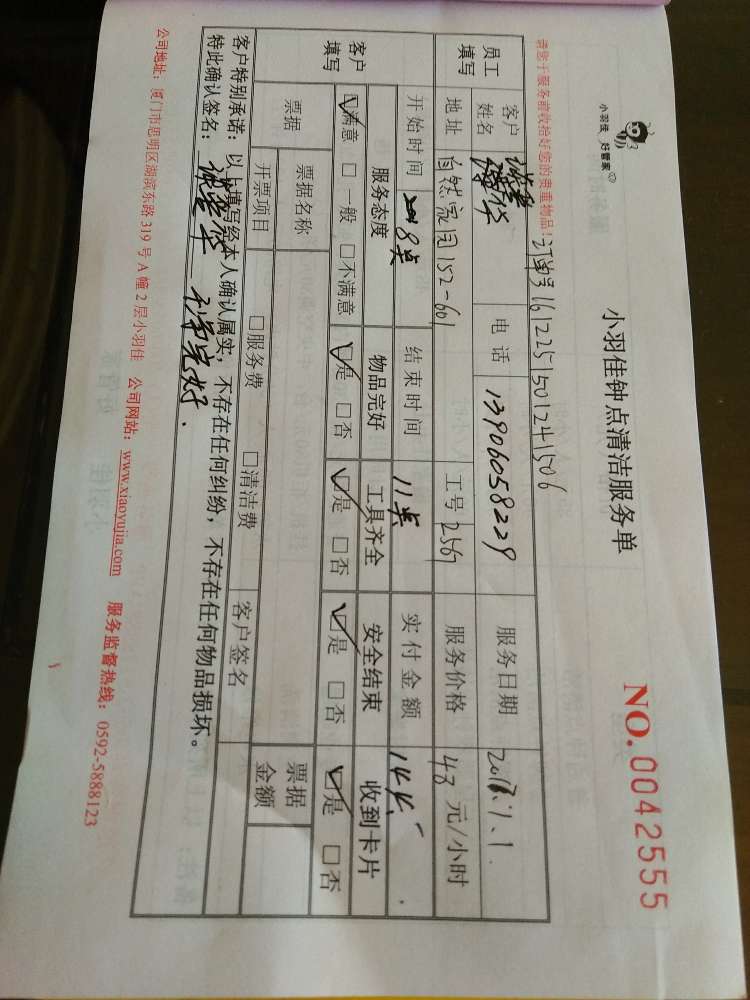 小羽佳 好管家
小羽佳钟点清洁服务单
NO. 0042555
请您于服务前收拾好您的贵重物品! 订单号1612251501241506
员工填写 客户姓名 电话 13906058229 服务日期
地址 自然家园152-601 工号 2567 服务价格 48 元/小时
开始时间 8点 结束时间 11点 实付金额 144
客户填写 服务态度 物品完好 工具齐全 安全结束 收到卡片
☑满意 □一般 □不满意 ☑是 □否 ☑是 □否 ☑是 □否 ☑是 □否
票据 票据名称 客户签名 票据金额
开票项目 □服务费 □清洁费
客户特别承诺:以上填写经本人确认属实,不存在任何纠纷,不存在任何物品损坏。
特此确认签名: 完好.
公司地址:厦门市思明区湖滨东路319号A幢2层小羽佳 公司网站:www.xiaoyujia.com 服务监督热线:0592-5888123